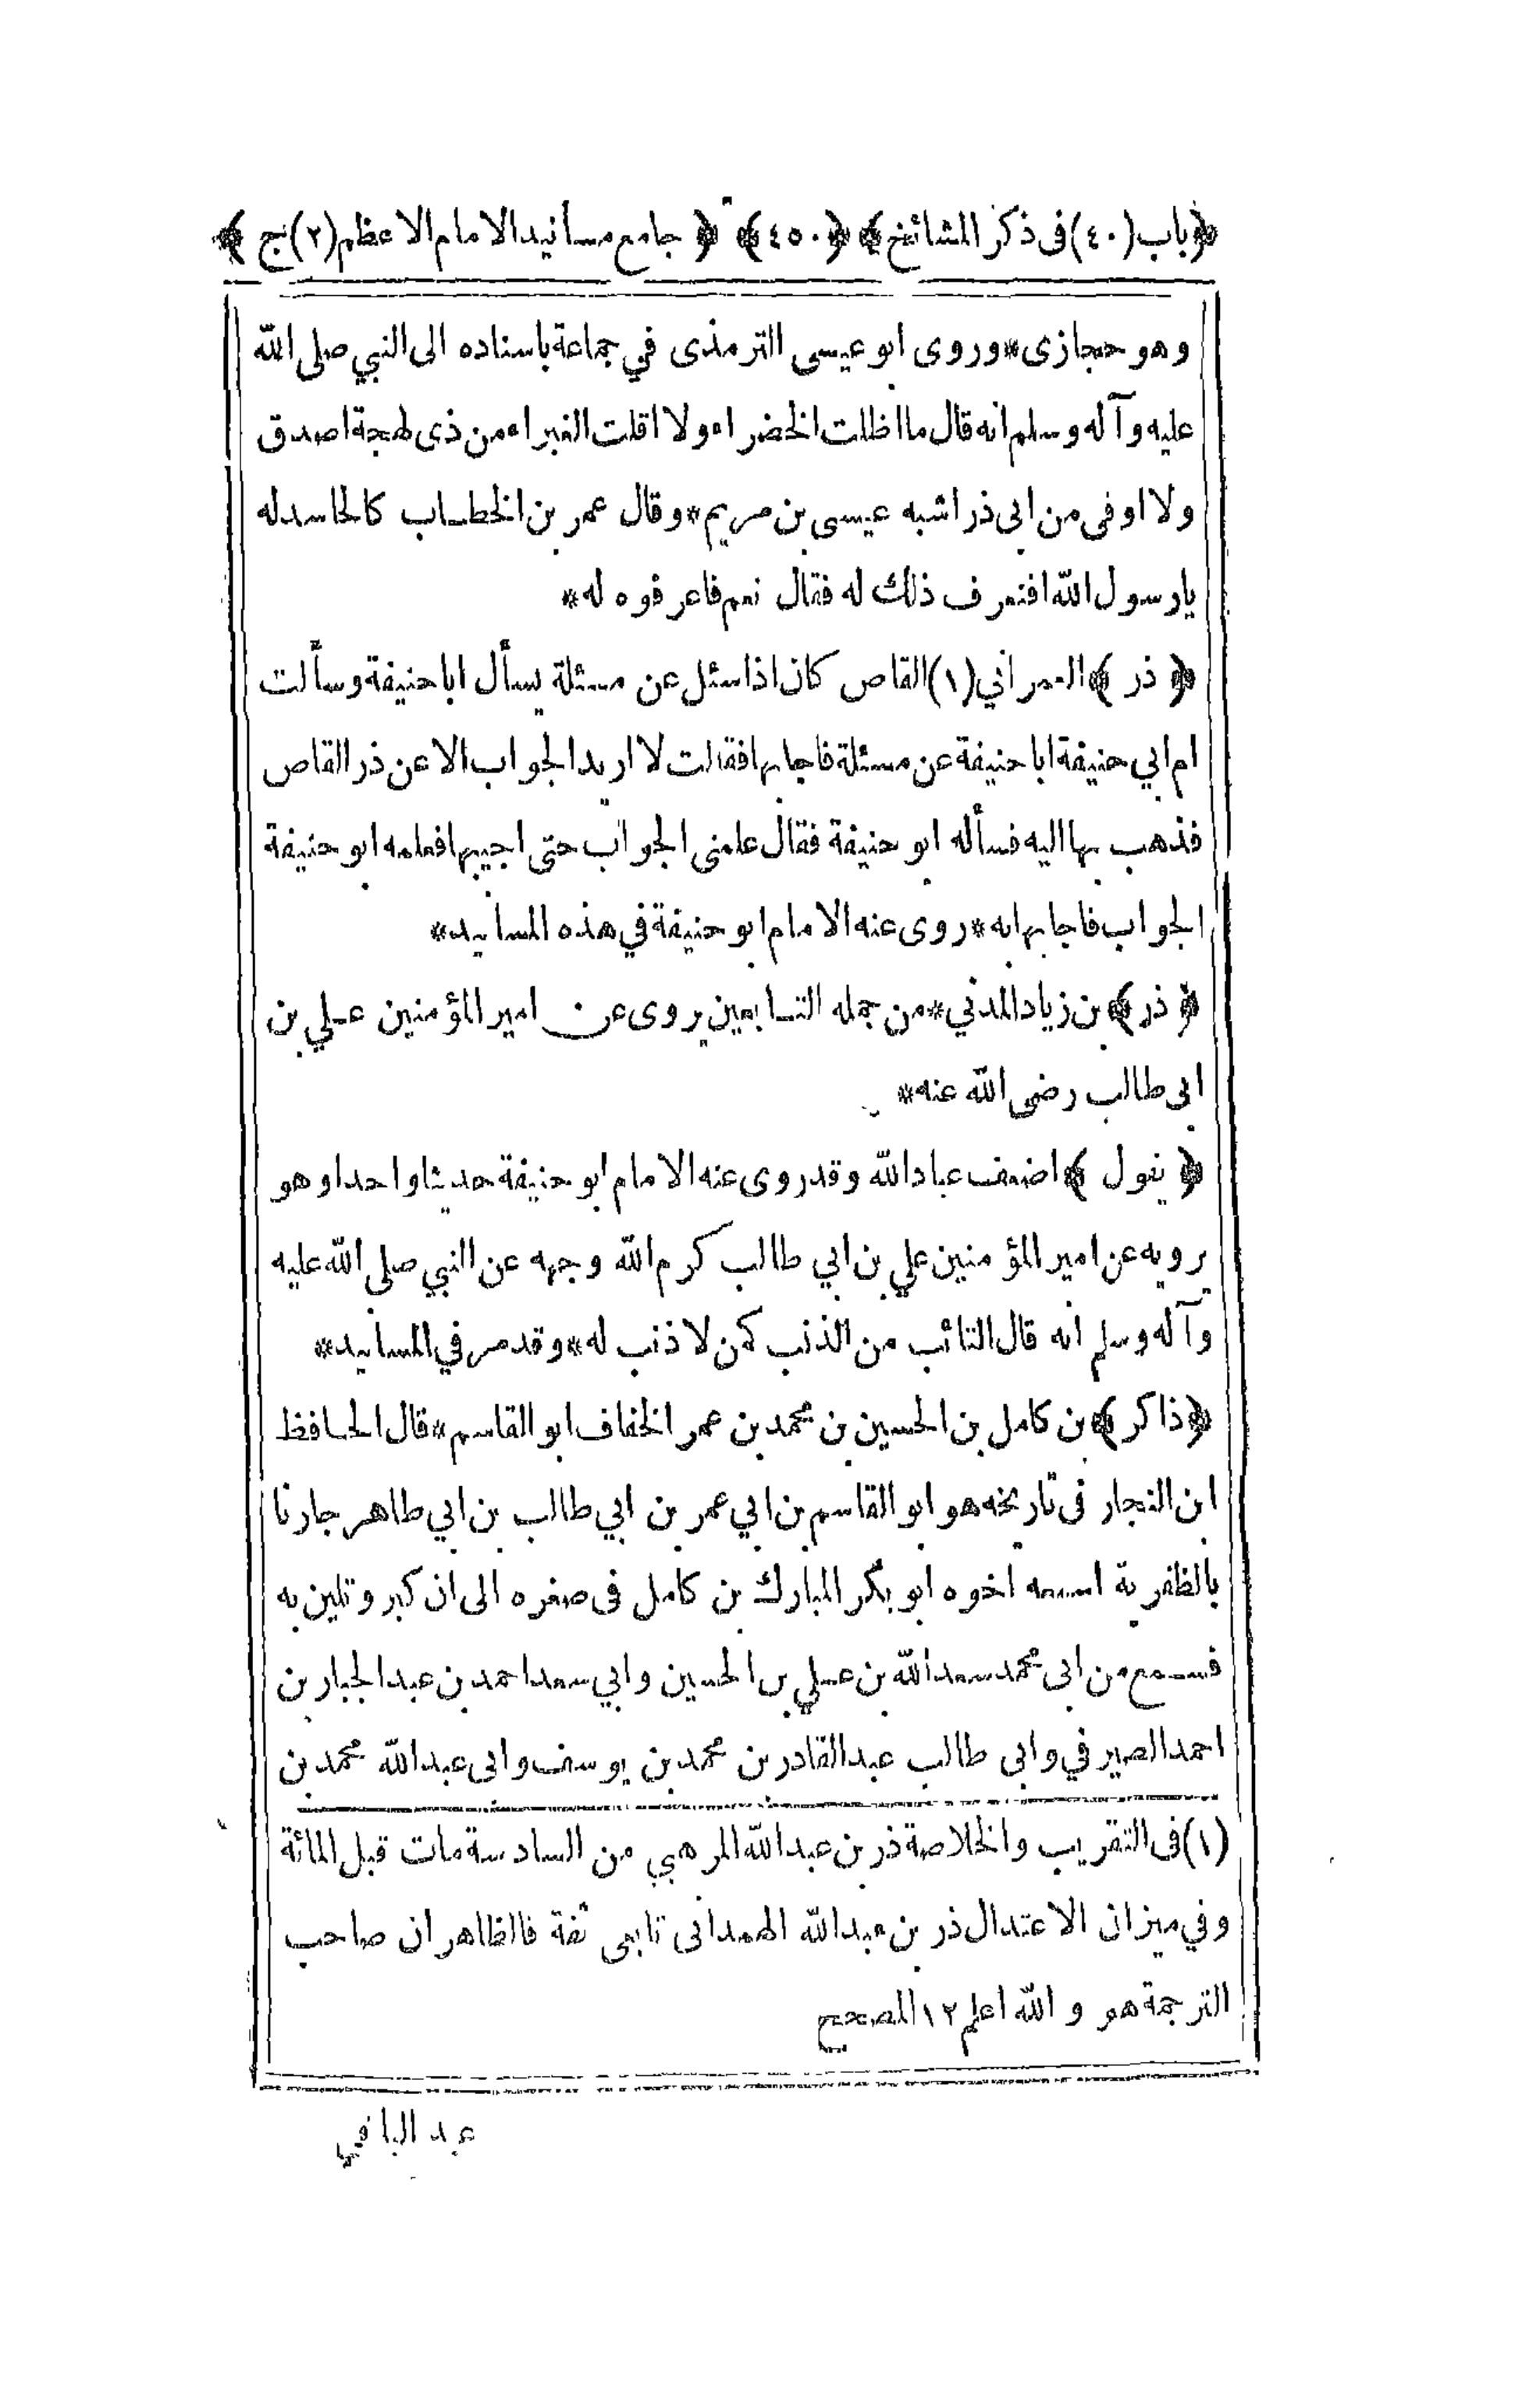 ﴿باب (٤٠) فى ذكر المشائخ﴾ ﴿٤٥٠﴾ ﴿جامع مسانيد الامام الاعظم (٢) ج﴾
وهو حجازى * وروى ابو عيسى الترمذى في جماعة باسناده الى النبي صلى الله
عليه وآله وسلم انه قال ما اظلت الخضراء ولا اقلت الغبراء من ذى لهجة اصدق
ولا اوفى من ابى ذر اشبه عيسى بن مريم * وقال عمر بن الخطاب كالحاسد له
يا رسول الله افنعرف ذلك له فقال نعم فاعرفوه له *
﴿ذر﴾ العمراني (١) القاص كان اذا سئل عن مسئلة يسأل ابا حنيفة وسألت
ام ابي حنيفة ابا حنيفة عن مسئلة فاجابها فقالت لا اريد الجواب الا عن ذر القاص
فذهب بها اليه فسأله ابو حنيفة فقال علمنى الجواب حتى اجيبها فعلمه ابو حنيفة
الجواب فاجابها به * روى عنه الامام ابو حنيفة في هذه المسانيد *
﴿ذر﴾ بن زياد المدني * من جمله التابعين يروى عن امير المؤمنين علي بن
ابى طالب رضى الله عنه *
﴿يقول﴾ اضعف عباد الله وقد روى عنه الامام ابو حنيفة حديثا واحدا وهو
يرويه عن امير المؤمنين علي بن ابي طالب كرم الله وجهه عن النبي صلى الله عليه
وآله وسلم انه قال التائب من الذنب كمن لا ذنب له * وقد مر في المسانيد *
﴿ذاكر﴾ بن كامل بن الحسين بن محمد بن عمر الخفاف ابو القاسم * قال الحافظ
ابن النجار فى تاريخه هو ابو القاسم بن ابي عمر بن ابي طالب بن ابي طاهر جارنا
بالظفرية اسمعه اخوه ابو بكر المبارك بن كامل فى صغره الى ان كبر وتلين به
فسمع من ابى محمد سعد الله بن علي بن الحسين وابي سعد احمد بن عبد الجبار بن
احمد الصيرفي وابى طالب عبد القادر بن محمد بن يوسف وابى عبد الله محمد بن
(١) فى التقريب والخلاصة ذر بن عبد الله المرهبي من السادسة مات قبل المائة
وفي ميزان الاعتدال ذر بن عبد الله الهمدانى تابعى ثقة فالظاهر ان صاحب
الترجمة هو و الله اعلم ١٢ المصحح
عبد الباقي